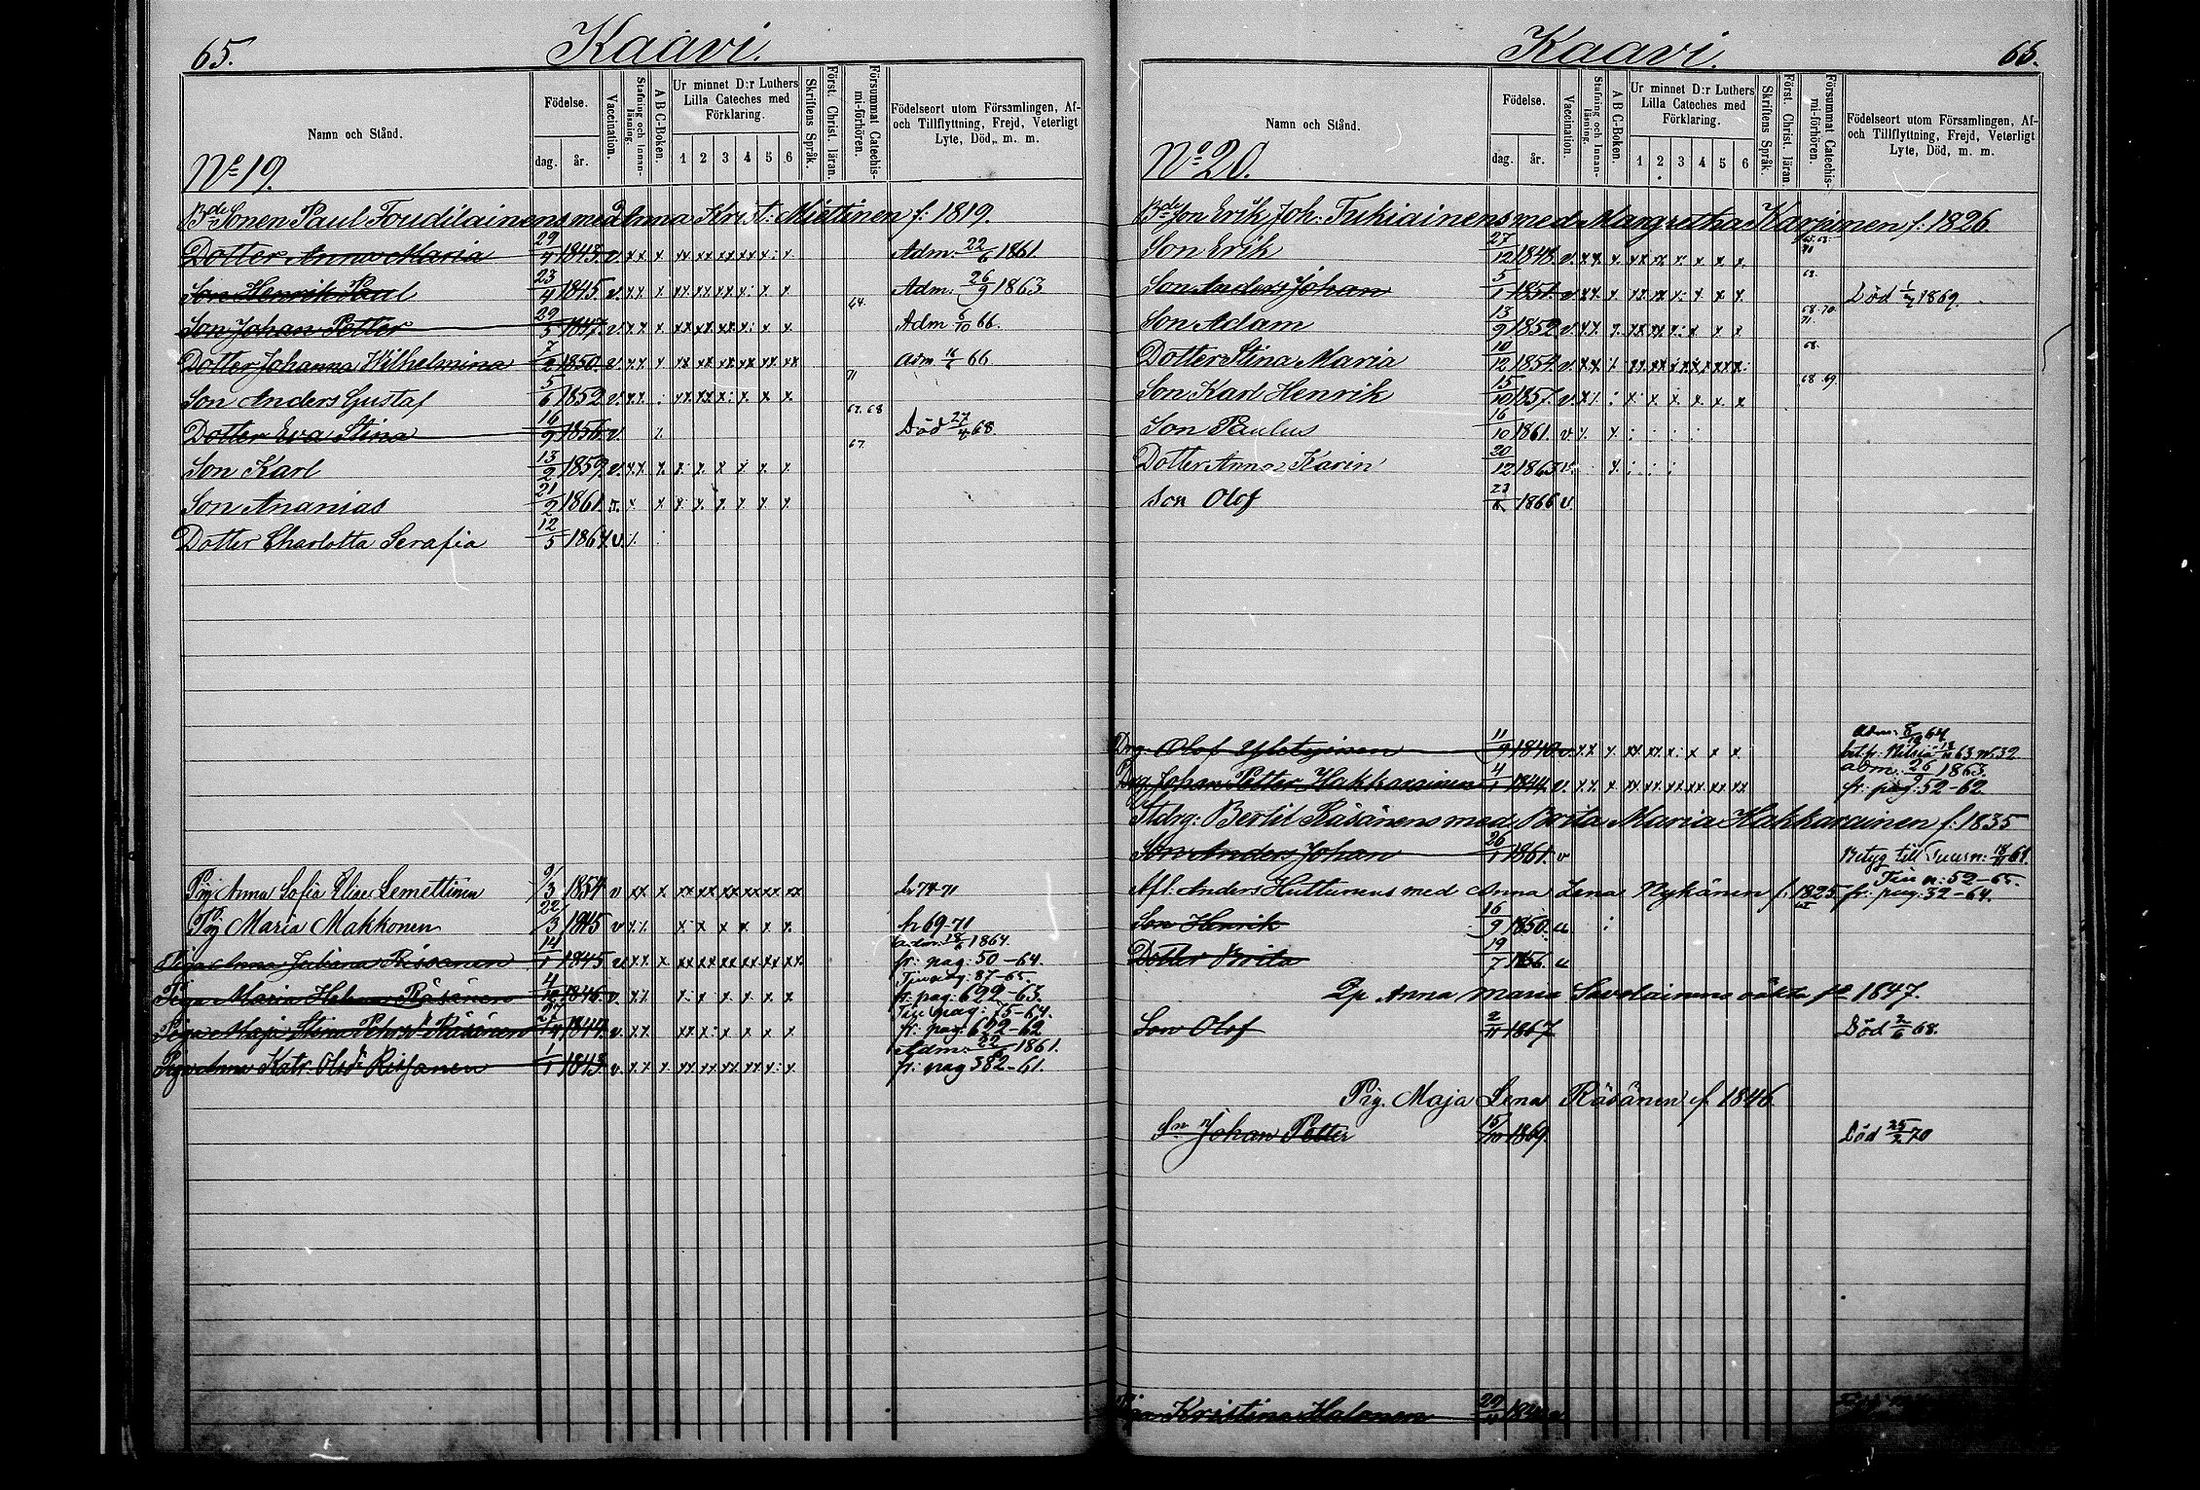 65. Kaavi.
Namn och Stånd.
Födelse.
dag. år.
Vaccination.
Stafning och Innan-läsning.
A B C-Boken.
Ur minnet D:r Luthers Lilla Cateches med Förklaring.
1 2 3 4 5 6
Skriftens Språk.
Först. Christ. läran.
Försummat Catechis-mi-förhören.
Födelseort utom Församlingen, Af- och Tillflyttning, Frejd, Veterligt Lyte, Död, m. m.
No 19.
Bde Sonen Paul Toudilainens med Anna Krist: Miettinen f: 1819.
Dotter Anna Maria 29/4 1843. v. Adm: 22/6 1861.
Son Henrik Paul 23/4 1845. v. Adm: 26/9 1863
Son Johan Petter 29/5 1847. v. 64. Adm 6/10 66.
Dotter Johanna Wilhelmina 7/2 1850. v. adm 66
Son Anders Gustaf 5/6 1852 v. 71
Dotter Eva Stina 16/9 1856 v. 67. 68 Död 27/4 68.
Son Karl 13/2 1859. v. 67.
Son Ananias 21/2 1861 v.
Dotter Charlotta Serafia 12/5 1864. v.
Pig Anna Sofia Elise Lemettinen 9/3 1854 v
Pig Maria Makkonen 22/3 1845 v fr 69-71
Piga Anna Juliana Räsänen 14/1 1845 v adm: 18/6 1864. fr: pag: 50-64.
Piga Maria Helena Räsänen 4/12 1846. v. 87-65. fr: pag: 622-63.
Piga Maja Stina Petersdr Räsänen 27/4 1844. v. pag: 75-64. fr: pag: 622-62
Piga Anna Katr: Olsdr Rissanen 1/1 1843. v. Adm: 22/6 1861. fr: pag 382-61.
Kaavi. 65.
Namn och Stånd.
Födelse.
dag. år.
Vaccination.
Stafning och Innan-läsning.
A B C-Boken.
Ur minnet D:r Luthers Lilla Cateches med Förklaring.
1 2 3 4 5 6
Skriftens Språk.
Först. Christ. läran.
Försummat Catechis-mi-förhören.
Födelseort utom Församlingen, Af- och Tillflyttning, Frejd, Veterligt Lyte, Död, m. m.
No 20.
Bde Son Erik Joh: Tukiainens med Margretha Karpinen f: 1826.
Son Erik 27/12 1848. v.
Son Anders Johan 5/1 1851. v 68. Död 1869.
Son Adam 13/9 1852 v. 68. 70. 71.
Dotter Stina Maria 10/12 1854. v. 68.
Son Karl Henrik 15/10 1857. v. 68 69.
Son Paulus 16/10 1861. v
Dotter Anna Karin 20/12 1863 v.
Son Olof 23/ 1866 v.
Drg. Olof 11/9 1840 v. adm: 64 bet. fr: Nilsiä 63 no 32
Drg. Johan Petter Hakkarainen 4/1 1844. v. adm: 26/9 1863. fr: pag: 52-62
Stdrg: Bertil Räsänens med Brita Maria Hakkarainen f: 1835
Son Anders Johan 26/1 1861. v Betyg till
Afl: Anders Hutturens med Anna Lena Nykänen f: 1825. fr: pag: 32-64.
Son Henrik 16/9 1850. u
Dotter Brita 19/7 1856. u
Qp Anna Maria Savolainens oäkta 1847.
Son Olof 2/11 1867 Död 2/6 68.
Pig. Maja Lena Räsänen f 1846.
Sn Johan Petter 15/10 1869. Död 25/2 70
Piga Kristina Halonen 29/11